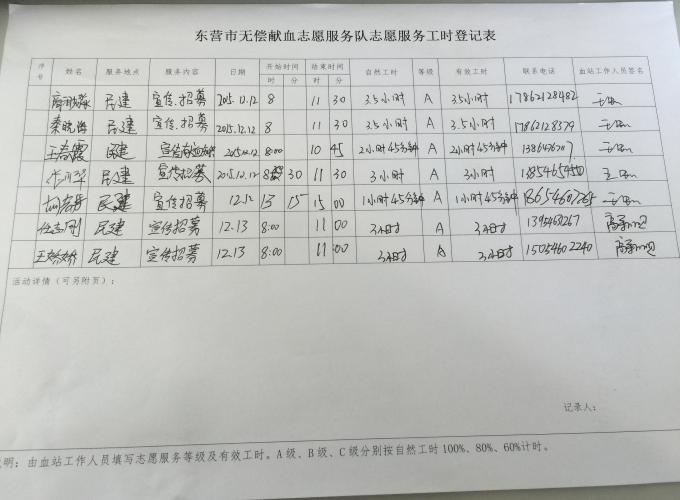 东营市无偿献血志愿服务队志愿服务工时登记表
序号 姓名 服务地点 服务内容 日期 开始时间 结束时间 自然工时 等级 有效工时 联系电话 血站工作人员签名
时 分 时 分
民建 宣传.招募 2015.12.12 8 11 30 3.5小时 A 3.5小时 17862128482
秦晓海 民建 宣传.招募 2015.12.12 8 11 30 3.5小时 A 3.5小时 17862128379
王春霞 民建 宣传 2015.12.12 8:00 10 45 2小时45分钟 A 2小时45分钟
民建 宣传招募 2015.12.12 8 30 11 30 3小时 A 3小时
民建 宣传招募 12.12 13 15 15 00 1小时45分钟 A 1小时45分钟
民建 宣传招募 12.13 8:00 11 00 3小时 A 3小时
王娇娇 民建 宣传招募 12.13 8:00 11 00 3小时 A 3小时 15054602240
活动详情（可另附页）：
记录人：
说明：由血站工作人员填写志愿服务等级及有效工时。A级、B级、C级分别按自然工时100%、80%、60%计时。